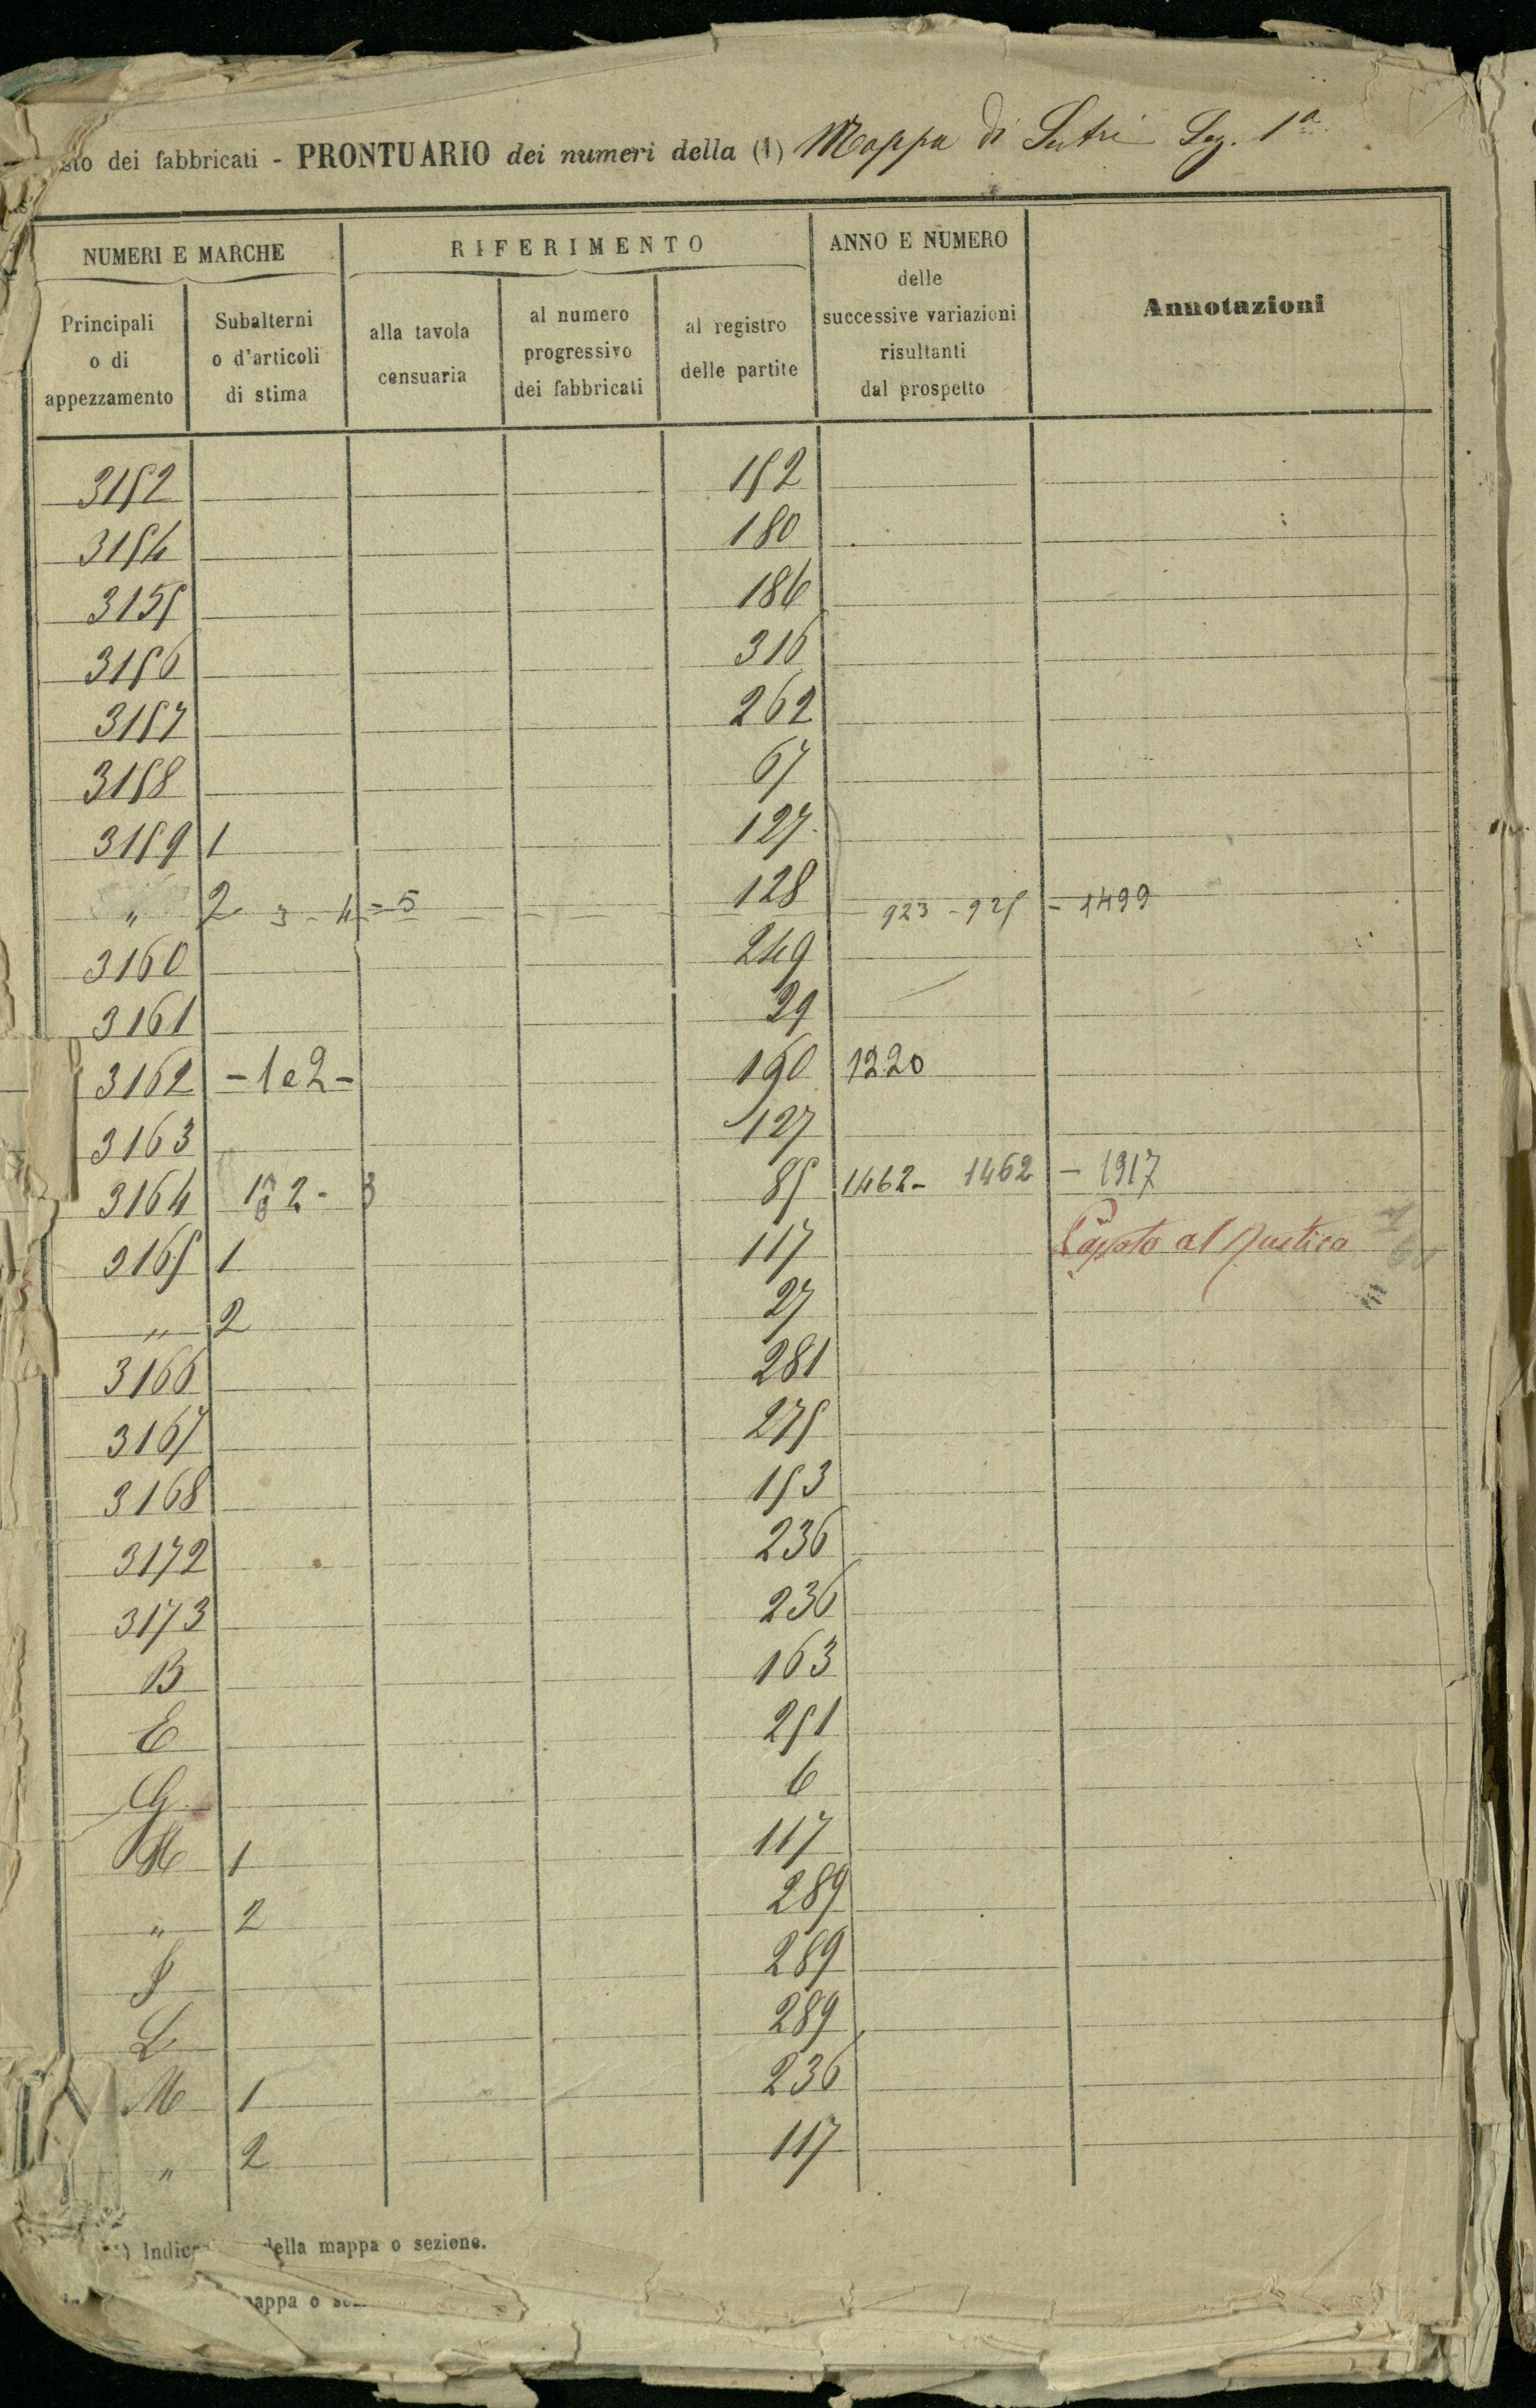 sto dei fabbricati - PRONTUARIO dei numeri della (1) Mappa di Sutri Sez. 1ª
NUMERI E MARCHE
RIFERIMENTO
ANNO E NUMERO
delle
successive variazioni
risultanti
dal prospetto
Annotazioni
Principali
o di
appezzamento
Subalterni
o d'articoli
di stima
alla tavola
censuaria
al numero
progressivo
dei fabbricati
al registro
delle partite
3152 152
3154 180
3155 186
3156 316
3157 262
3158 67
3159 1 127
" 2 3 - 4 = 5 128 923 - 925 - 1499
3160 249
3161 29
3162 - 1 e 2 - 190 1220
3163 127
3164 2 - 3 85 1462 - 1462 - 1917
3165 1 117 Passato al Rustico
" 2 27
3166 281
3167 275
3168 153
3172 236
3173 236
B 163
E 251
G 6
H 1 117
" 2 289
289
L 289
M 1 236
" 2 117
della mappa o sezione.
mappa o